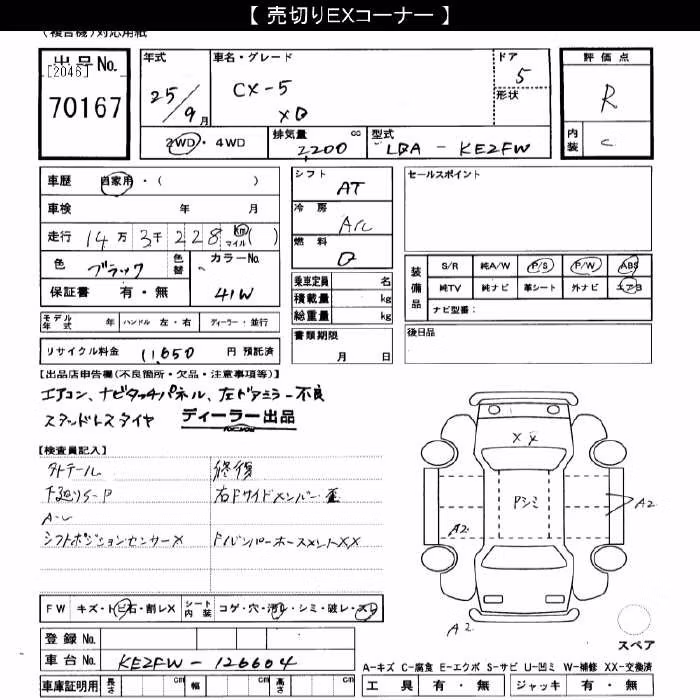 【 売切りEXコーナー 】
(複合機)対応用紙
出品No.
[2046]
70167
年式
25/9月
車名・グレード
CX-5
XD
ドア
5
形状
評価点
R
内装
C
2WD・4WD
排気量 cc
2,200
型式
LDA - KE2FW
車歴 自家用・( )
車検 年 月
走行 14万 3千 228 Km マイル ( )
色 ブラック 色替 カラーNo. 41W
保証書 有・無
シフト
AT
冷房
A/C
燃料
D
セールスポイント
乗車定員 名
積載量 kg
総重量 kg
装備品
S/R 純A/W P/S P/W ABS
純TV 純ナビ 革シート 外ナビ エアB
ナビ型番:
モデル年式 年 ハンドル 左・右 ディーラー・並行
書類期限
月 日
後日品
リサイクル料金 11,650 円 預託済
【出品店申告欄(不良箇所・欠品・注意事項等)】
エアコン、ナビタッチパネル、左ドアミラー不良
スタッドレスタイヤ ディーラー出品
【検査員記入】
修復
下廻りS-P 右Fサイドメンバー歪
シフトポジションセンサーX Fバンパーホースメント XX
X X
Pシミ
A2
A2
A2
FW キズ・トビ石・割レX シート内装 コゲ・穴・汚レ・シミ・破レ・スレ
登録No.
車台No. KE2FW - 126604
車庫証明用 長さ cm 幅 cm 高さ cm
スペア
A-キズ C-腐食 E-エクボ S-サビ U-凹ミ W-補修 XX-交換済
工具 有・無 ジャッキ 有・無